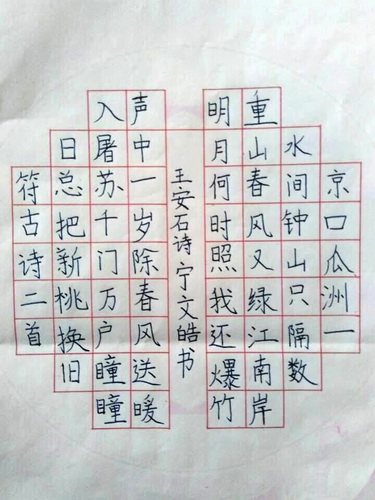 京口瓜洲一
水间钟山只隔数
重山春风又绿江南岸
明月何时照我还爆竹
声中一岁除春风送暖
入屠苏千门万户瞳瞳
日总把新桃换旧
符古诗二首
王安石诗宁文皓书